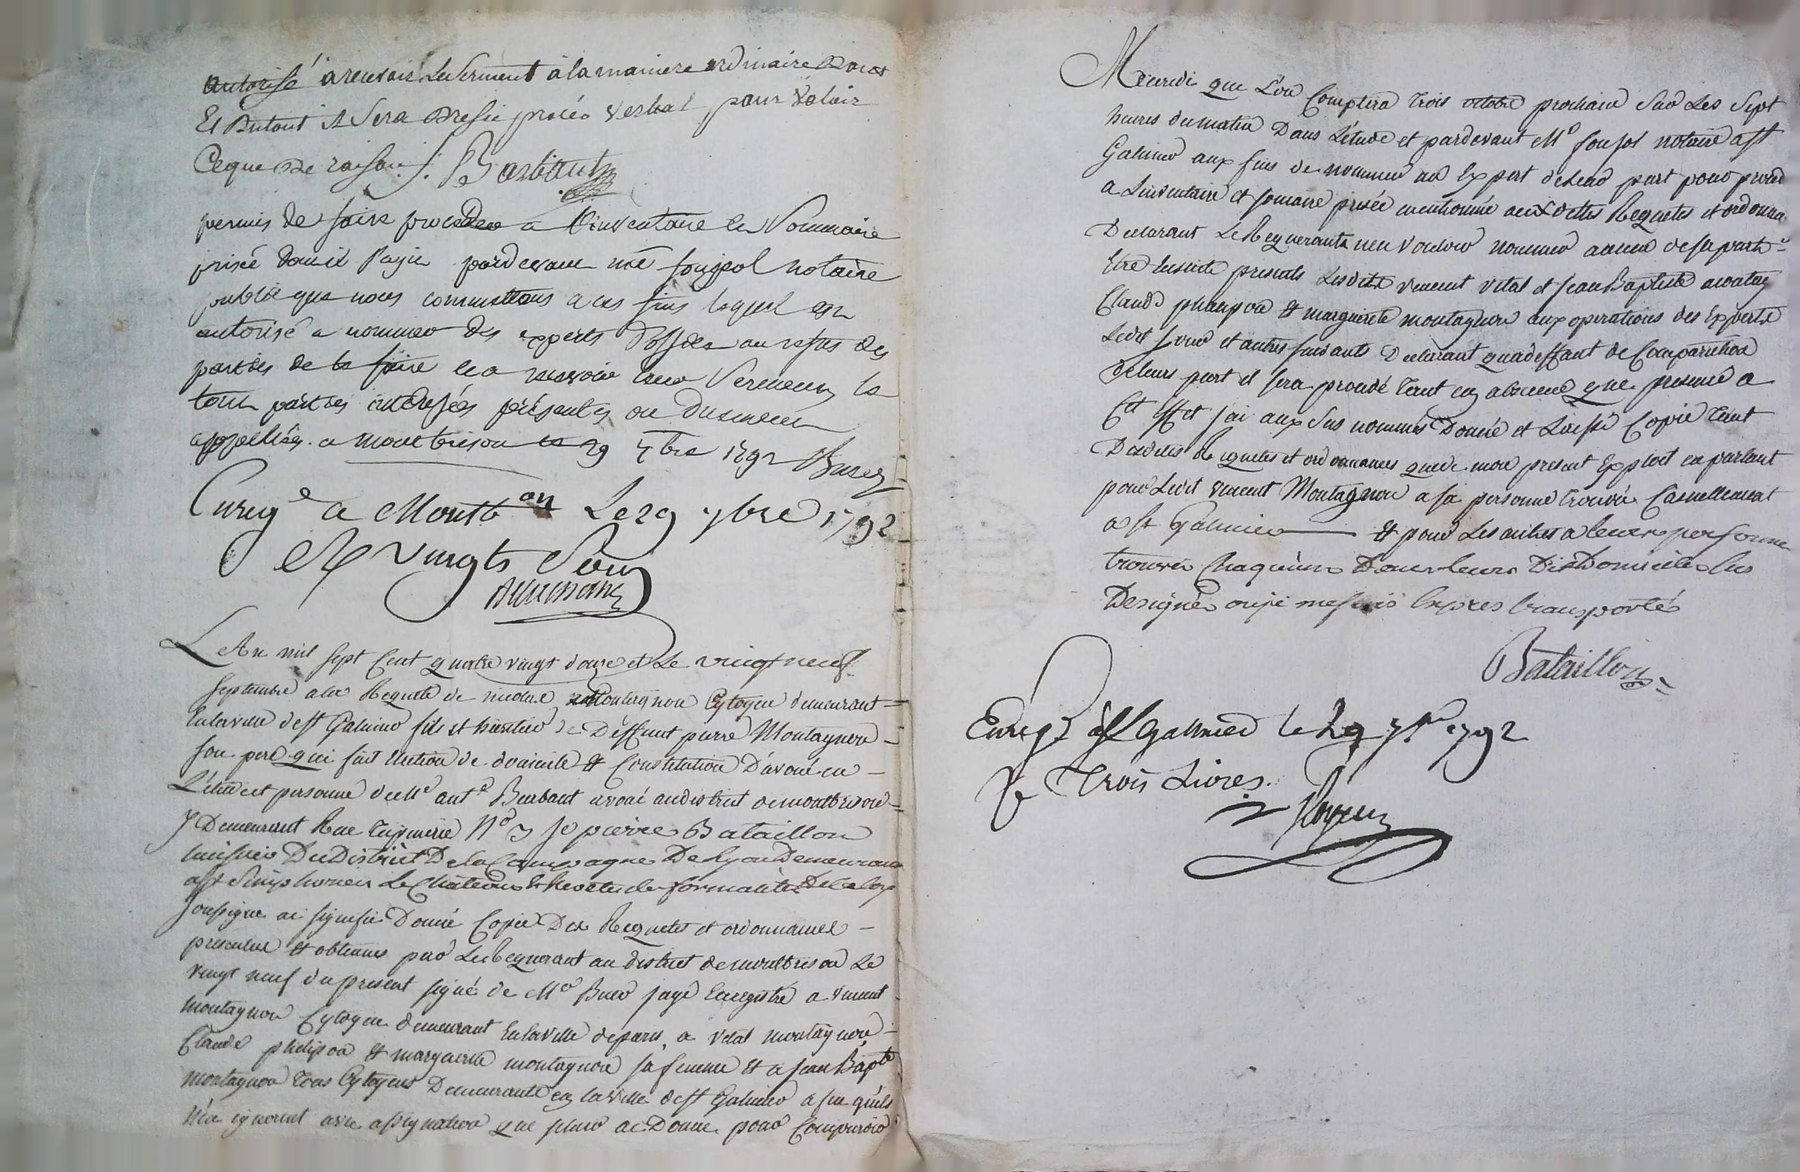 autorisé a recevoir le serment à la maniere ordinaire dont
Et Du tout il sera Dressé procès verbal pour valoir
Ceque De raison ./. Barbant
permis de faire proceder a l'inventaire et Sommaire
prisé dont il s'agit pardevant me fougerol notaire
public que nous commettons a ces fins lequel est
autorisé a nommer des experts d'office au refus des
parties de le faire et a recevoir leur Serment le
tout parties intéressées présentes ou Duement
appellées. a montbrison le 29 7bre 1792 Buer
Enregé a Montbon Le 29 7bre 1792
R vingts Sous
L'An mil sept Cent quatre vingt douze et Le vingt neuf
septembre a la Requete de nicolas Montagnon Cytoyen demeurant
En la ville de st Galmier fils et heritier de Deffunt pierre Montagnon
son pere qui fait Election de domicile & Constitution D'avoué en
L'étude et personne de Me ante Barbant avoué au district de montbrison
y Demeurant Rue tupinerie No 3 Je pierre Bataillon
huissier Du District De la Campagne De Lyon Demeurant
a st Simphorien Le Château & Revetu des formalités De la loy
soussigne ai signifié Donné Copie Des Requetes et ordonnances
presentées & obtenues par Le Requerant au district de montbrison Le
vingt neuf du present signé de Mr Buer juge Enregistré a vincent
montagnon Cytoyen demeurant En la ville de paris, a vital montagnon
Claude philipon & marguerite montagnon sa femme & a jean Bapte
montagnon tous Cytoyens Demeurants en la ville de st Galmier a fin qu'ils
n'en ignorent avec assignation que leur ai Donné pour Comparoir
Mercredi que L'on Comptera trois octobre prochain Sur Les Sept
heures du matin Dans L'étude et pardevant Me fougerol notaire a st
Galmier aux fins de nommer un Expert de leur part pour proceder
a L'inventaire et somaire prisée mentionnée auxdittes Requetes et ordonnan
Declarant Le Requerant n'en vouloir nommer aucun de sa part
Etre Ensuite presents Lesdits vincent vital et Jean Baptiste montag
Claude philipon & marguerite montagnon aux operations des Experts
Ledit jour et autres suivants Declarant qu'a deffaut de Comparution
de leurs part il sera procedé tant en absence que presence a
Cet effet j'ai aux Sus nommés Donné et Laissé Copie tant
Desdites Requetes et ordonnances que de mon present Exploit en parlant
pour Ledit vincent Montagnon a sa personne trouvée Casuellement
a st Galmier & pour Les autres a leurs personnes
trouvés Chaqu'uns Dans leurs Dits Domiciles Sus
Designés ou je me suis Exprès transporté
Bataillon
Enregé a st Galmier le 29 7bre 1792
R Trois Livres.